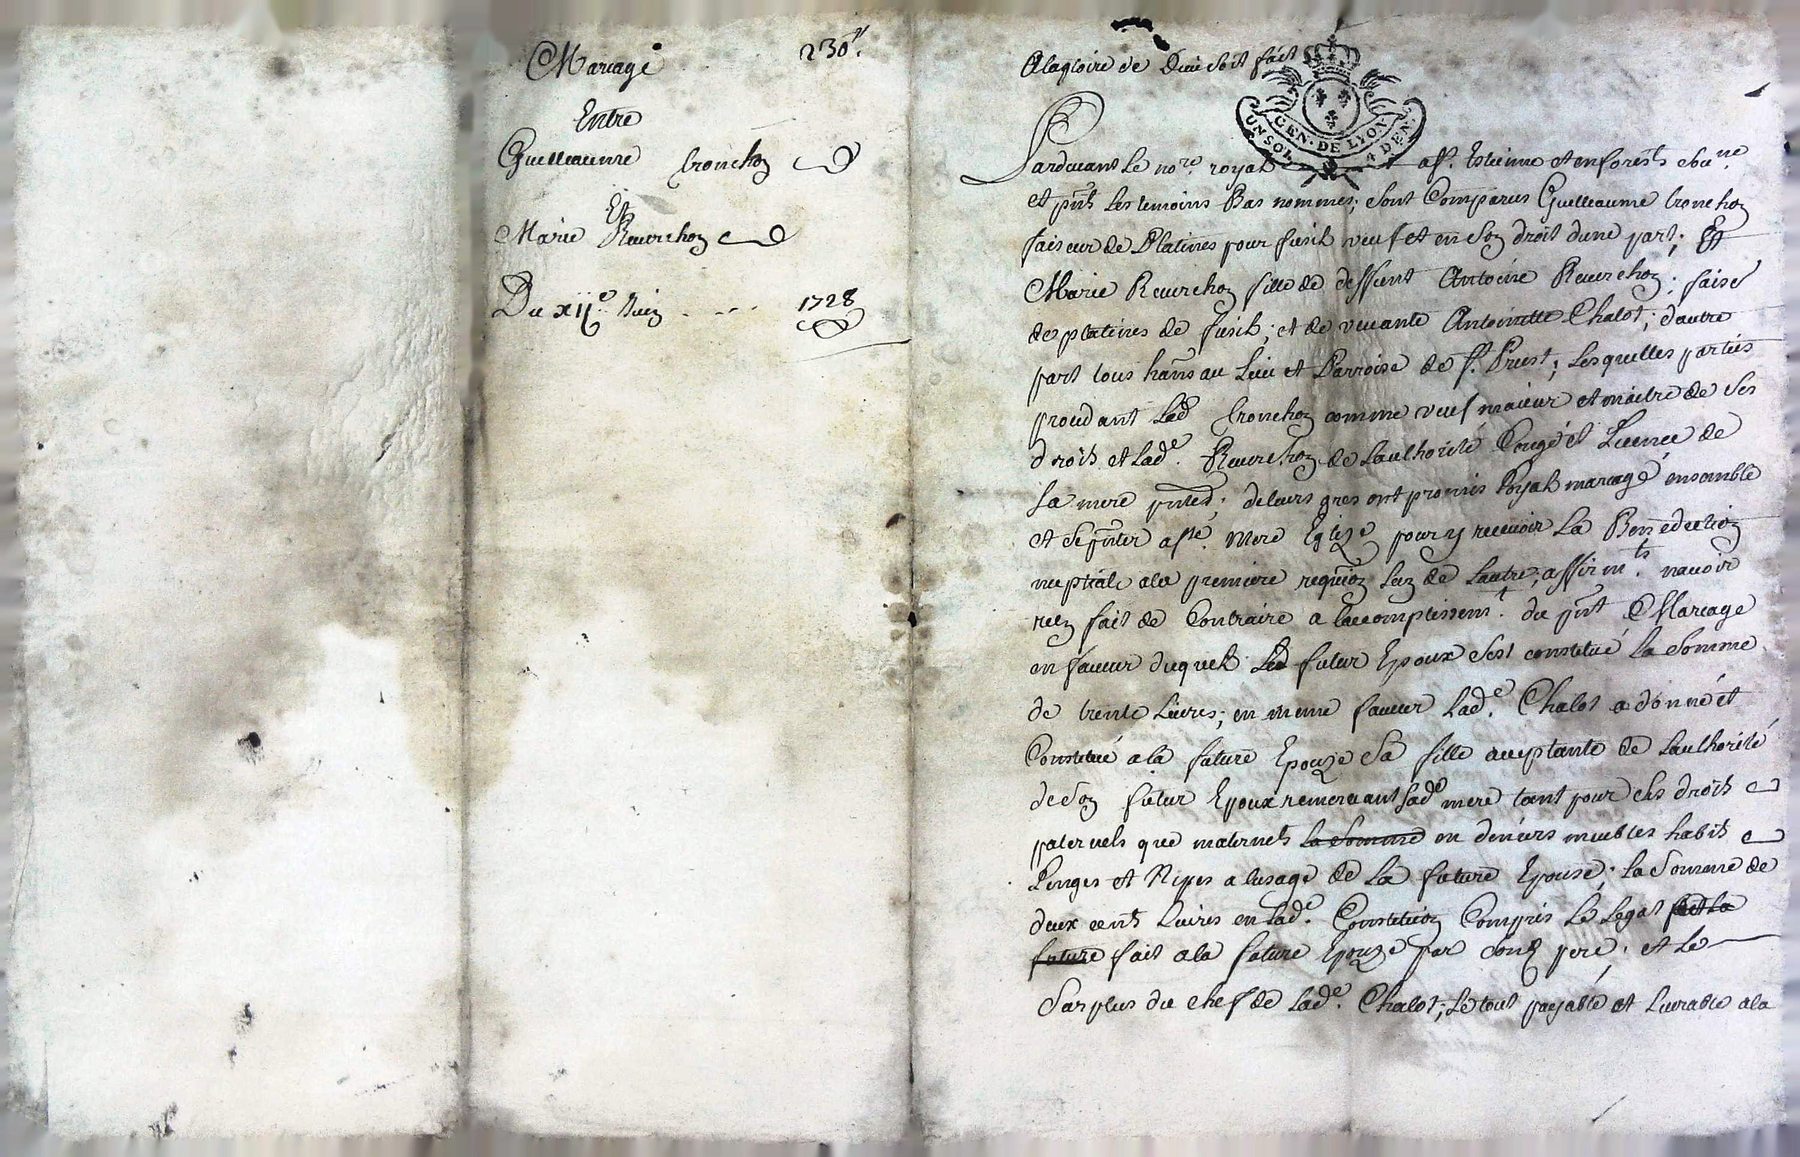 Mariage 230ᴴ.
Entre
Guilleaume Cronchoz
Et
Marie Reurchoz
Du xijᵉ Juin . . . . 1728
Alagloire de Dieu soit fait
UN SOL 4 DEN.
GEN. DE LYON
Pardevant le noʳᵉ. royal a Sᵗ. Estienne et en forests
et pnts les temoins Bas nommes; sont Comparus Guilleaume Cronchoz
faiseur de Platines pour fusil veuf et en soz droit dune part; Et
Marie Reurchoz fille de deffunt Antoine Reurchoz; faisr
de platines de fusil; et de vivante Antoinette Chalot; dautre
part tous hãns au Lieu et Parroise de St. Priest; Lesquelles parties
procedant Led Cronchoz comme veuf maieur et maitre de ses
droits et Ladᵉ. Reurchoz de Laulhorité Congé et Licence de
sa mere pnte; de leurs gres ont promis Loyal mariage ensemble
et se pnter a Sᵗᵉ. mere Eglize pour y recevoir La Benediction
nuptiale ala premiere requiõz Luz de Lautre, affirmᵗˢ. navoir
riez fait de Contraire a lacomplissemᵗ. du pnt Mariage
en faveur duquel Led futur Epoux sest constitué la somme
de trente Livres; en meme faveur Ladᵉ. Chalot a donné et
Constitué ala future Epouze sa fille aceptante de Laulhorité
de soz futur Epoux remerciant sadᵉ mere tant pour ses droits
paternels que maternels la somme en deniers meubles habits
Linges et Nipes a lusage de La future Epouse, la somme de
deux cents Livres en Ladᵉ. Constituõz Compris Le Legat fait la
future fait ala future Epouze par sond pere, et le
Surplus du chef de Ladᵉ. Chalot; Le tout payable et Livrable ala